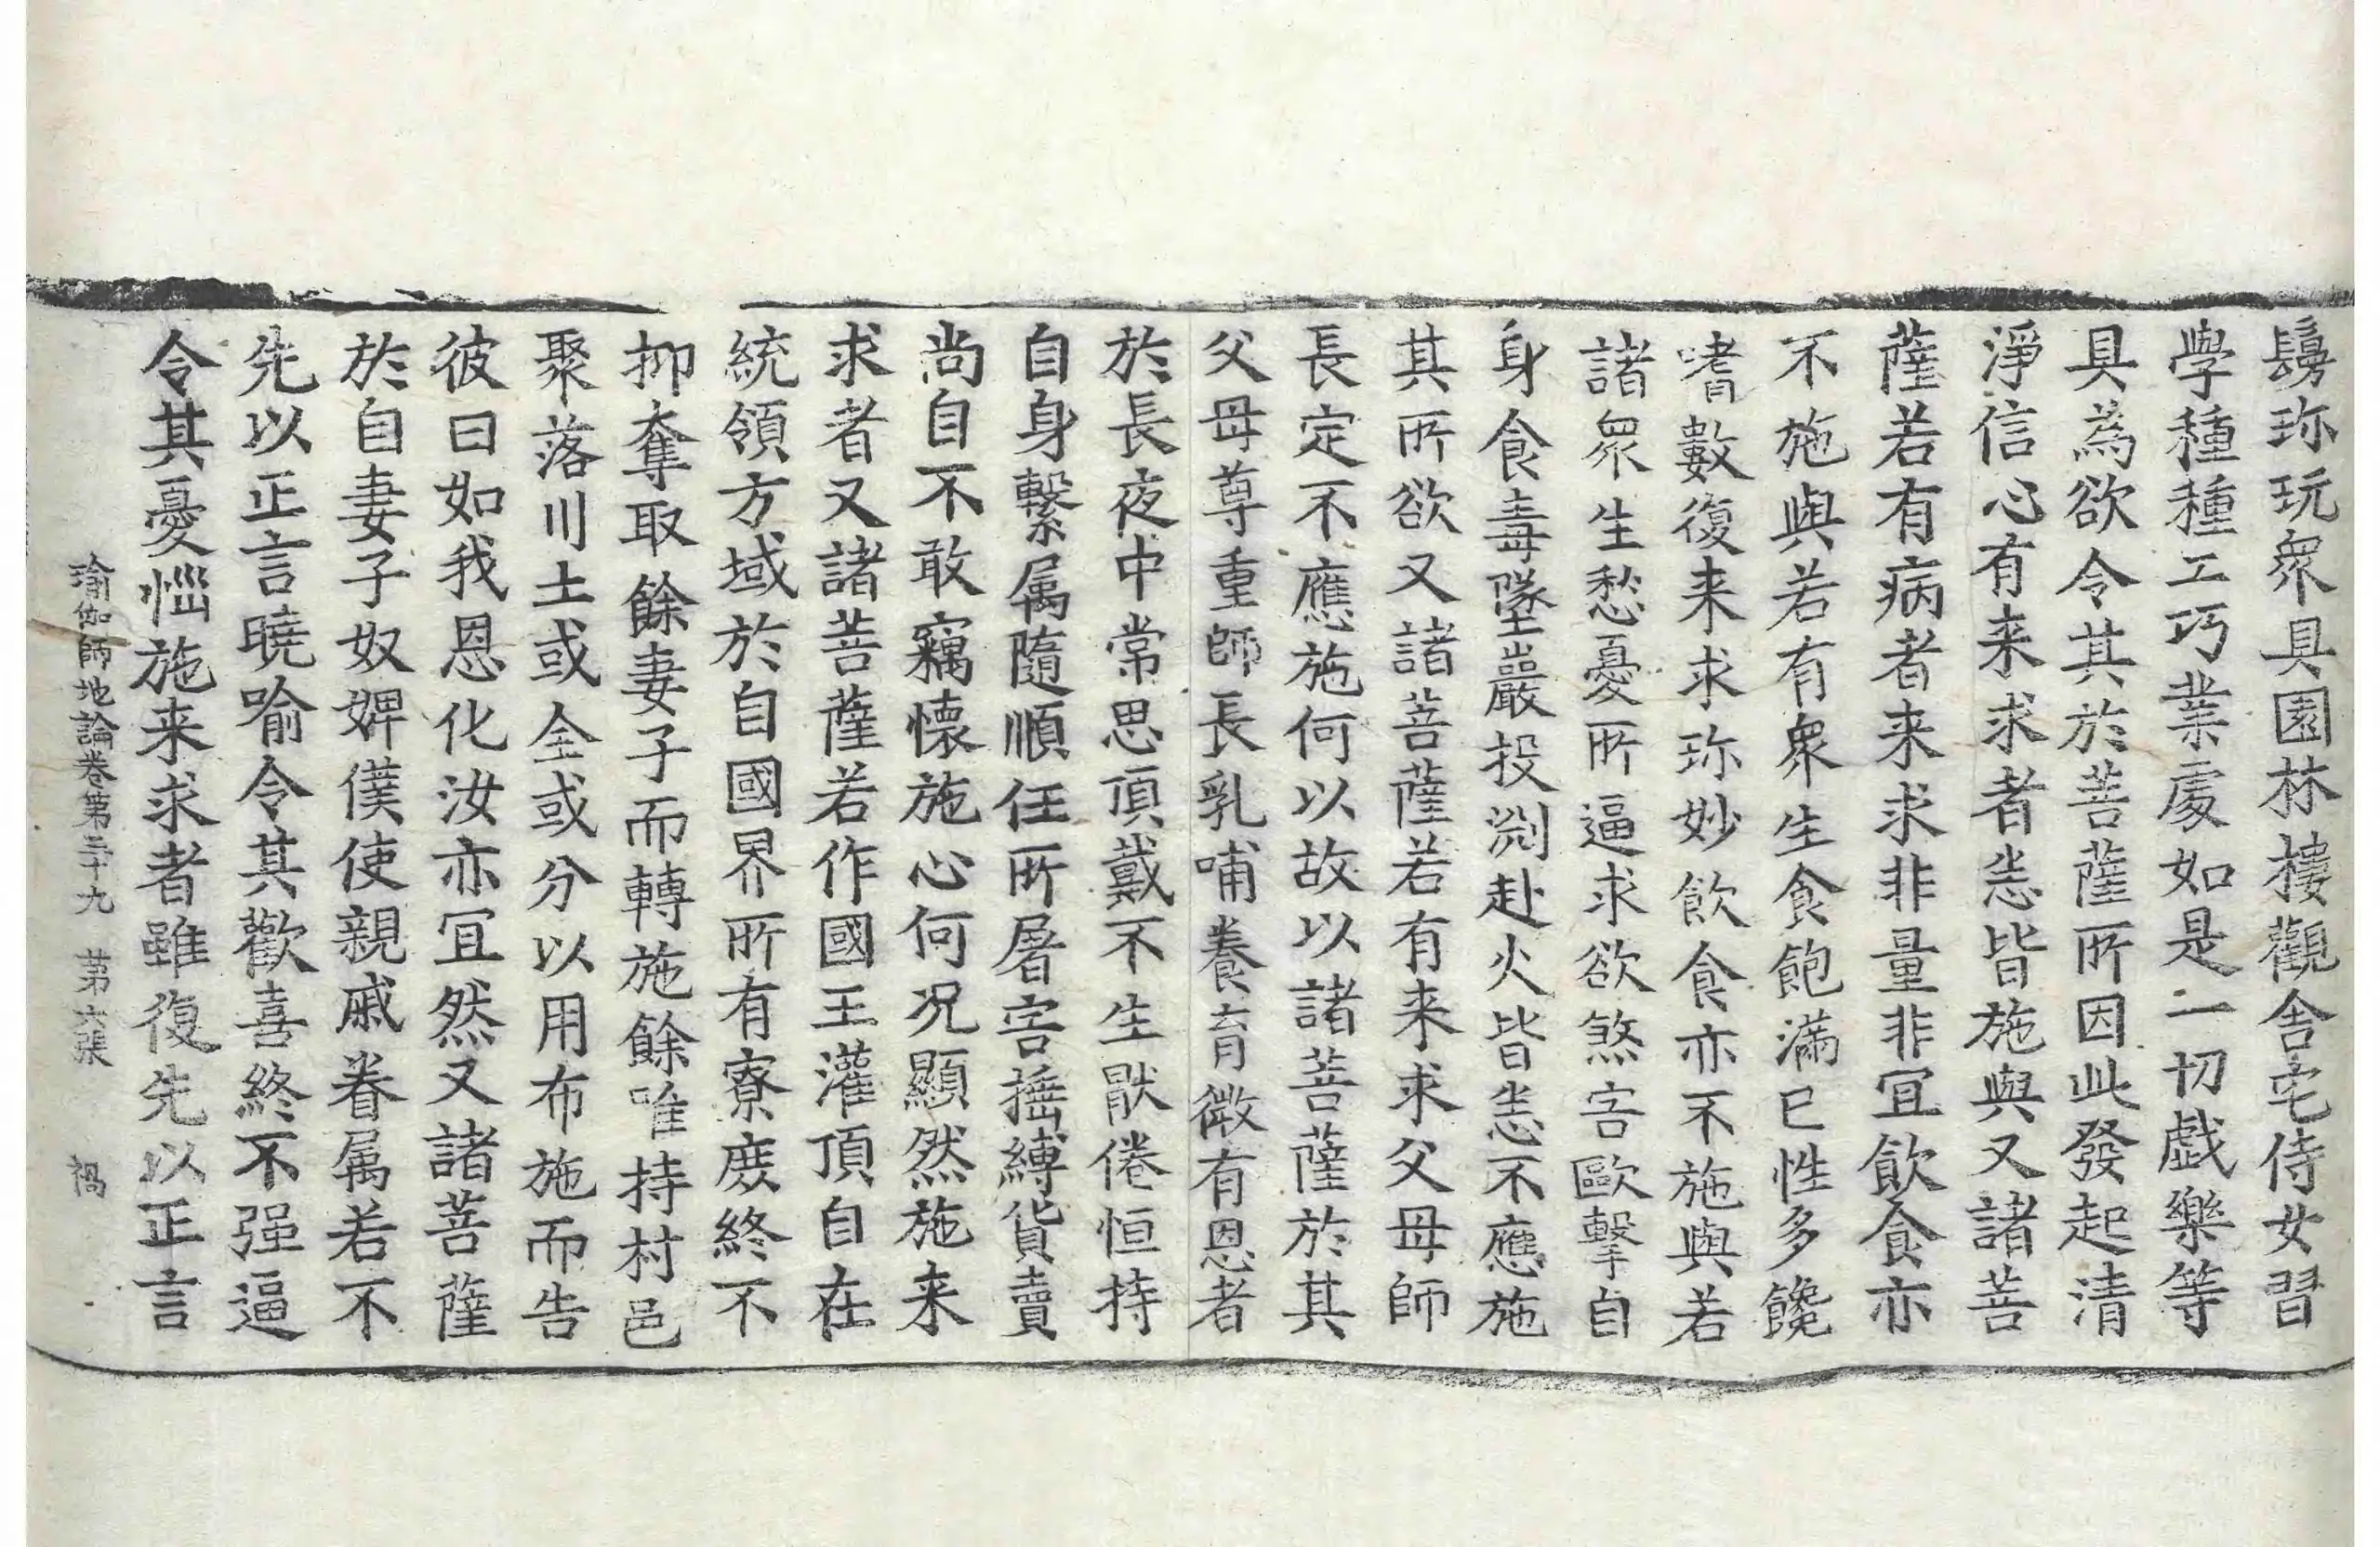 鬘珎玩衆具園林樓觀舍宅侍女習
學種種工巧業處如是一切戲樂等
具為欲令其於菩薩所因此發起清
淨信心有来求者悉皆施與又諸菩
薩若有病者来求非量非冝飲食亦
不施與若有衆生食飽滿已性多饞
嗜數復来求珎妙飲食亦不施與若
諸衆生愁憂所逼求欲煞害歐擊自
身食毒墜巖投淵赴火皆悉不應施
其所欲又諸菩薩若有来求父母師
長定不應施何以故以諸菩薩於其
父母尊重師長乳哺養育微有恩者
於長夜中常思頂戴不生猒倦恒持
自身繫屬隨順任所屠害捶縛貨賣
尚自不敢竊懷施心何况顯然施来
求者又諸菩薩若作國王灌頂自在
統領方域於自國界所有寮庶終不
抑奪取餘妻子而轉施餘唯持村邑
聚落川土或全或分以用布施而告
彼曰如我恩化汝亦冝然又諸菩薩
於自妻子奴婢僕使親戚眷屬若不
先以正言曉喻令其歡喜終不强逼
令其憂惱施来求者雖復先以正言
瑜伽師地論卷第三十九　第六張　禍